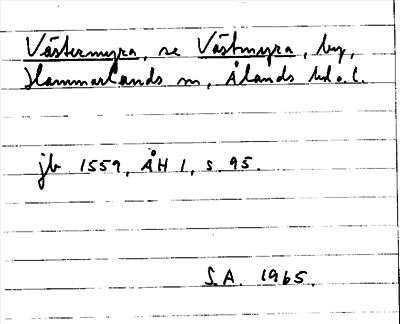 Västermyra, se Västmyra, by,
Hammarlands sn, Ålands hd o. l.
jb 1559, ÅH 1, s 95.
S.A. 1965.